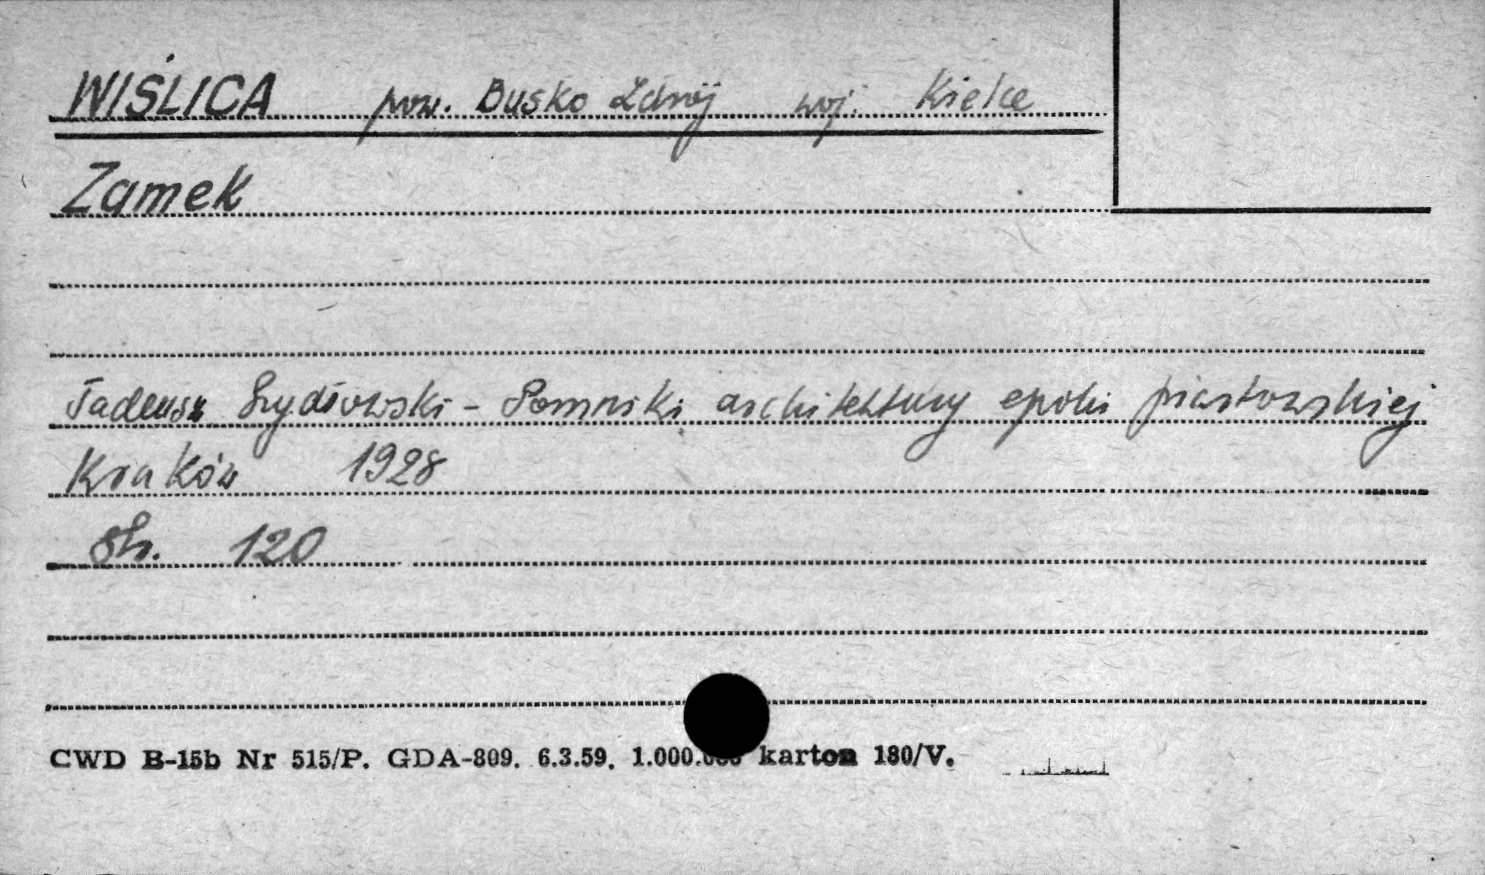 WIŚLICA pow. Busko Zdrój woj. Kielce
Zamek
Tadeusz Szydłowski - Pomniki architektury epoki piastowskiej
Kraków 1928
str. 120
CWD B-15b Nr 515/P. GDA-809. 6.3.59. 1.000.000 karton 180/V.